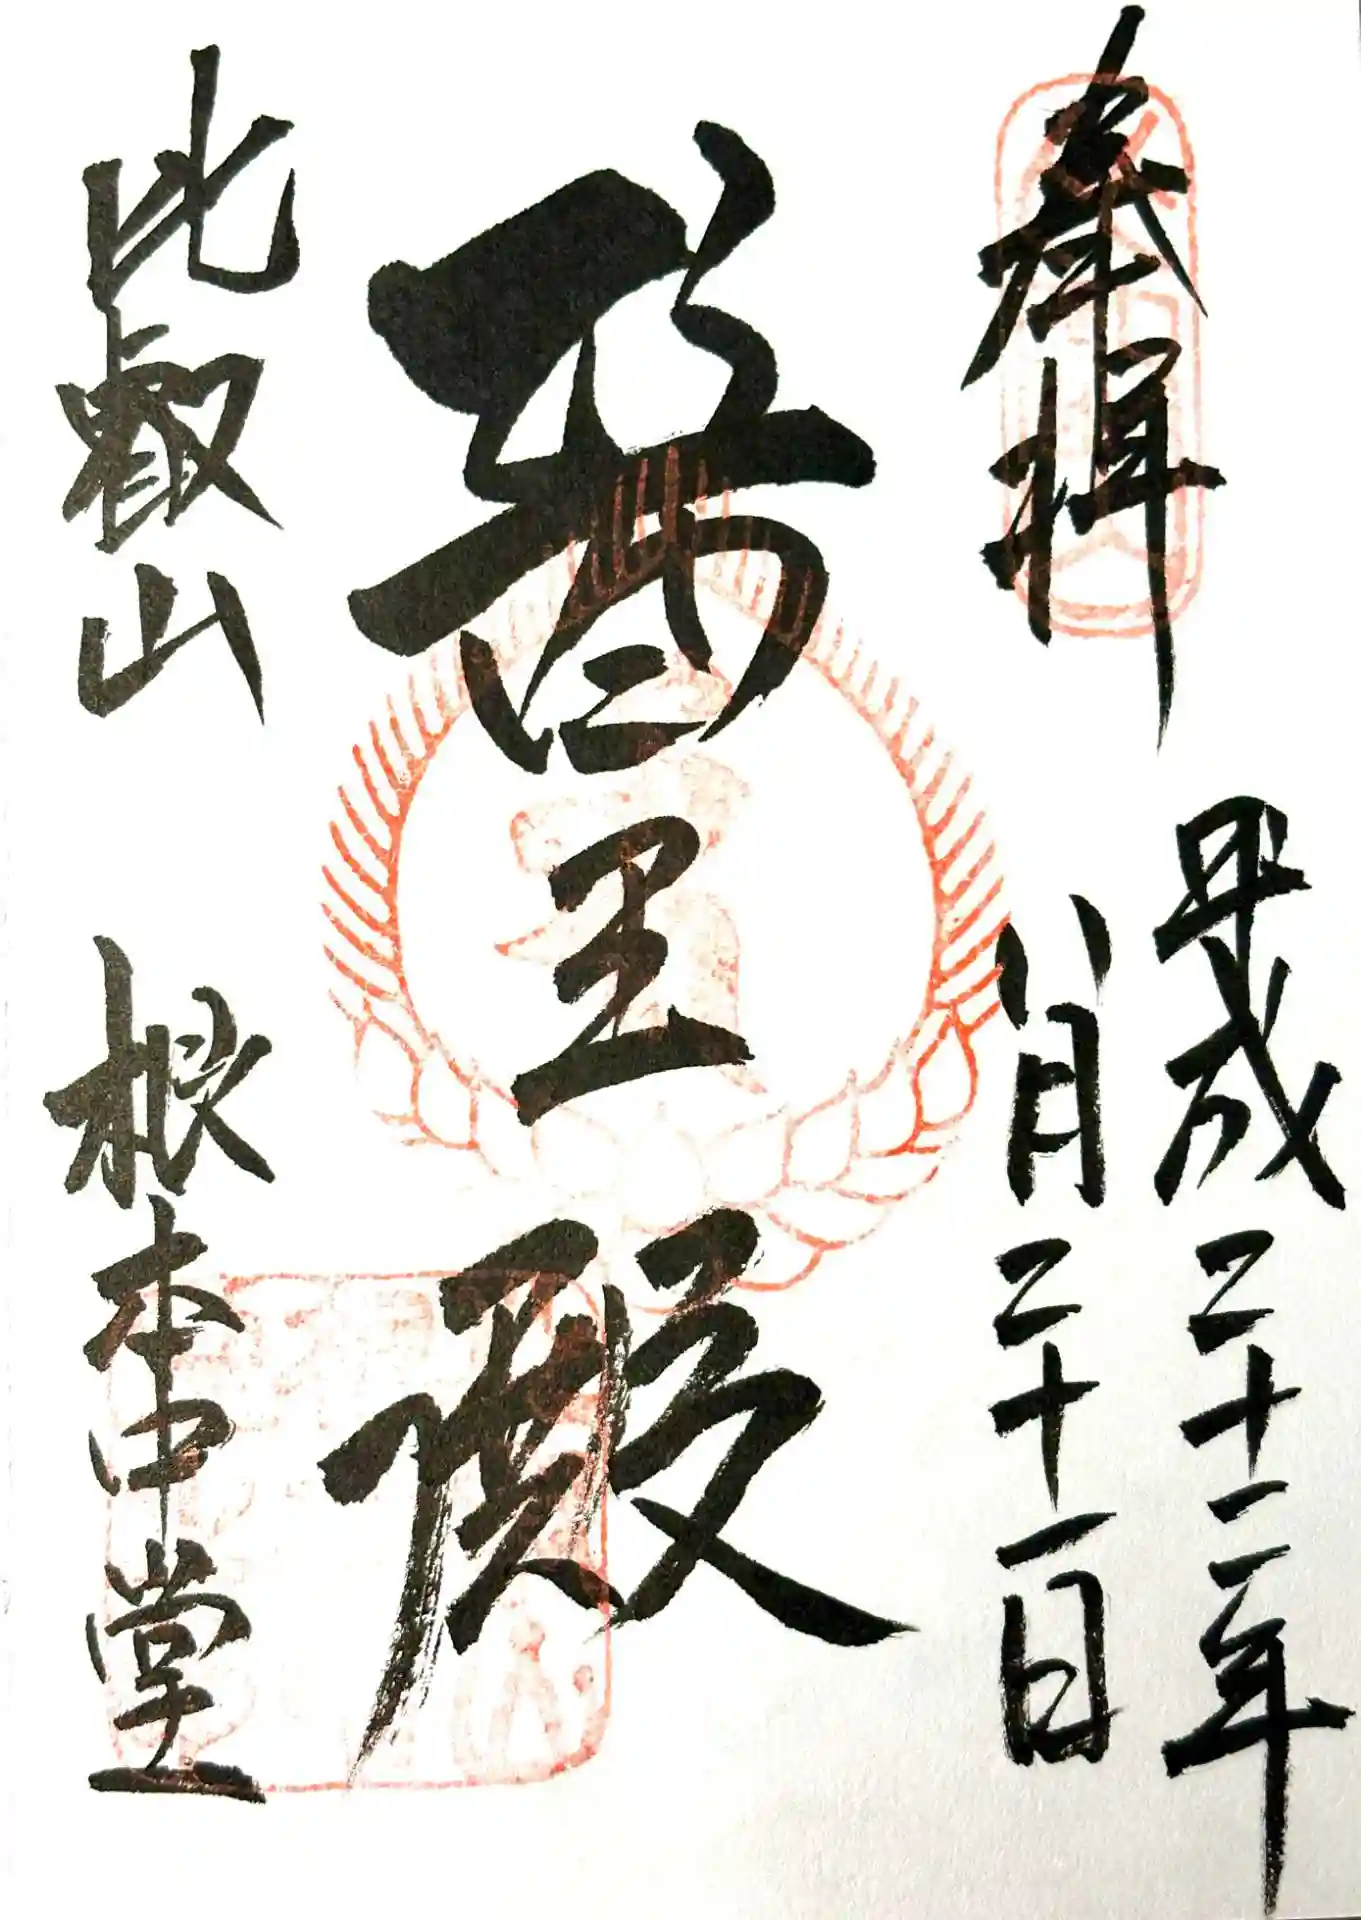 奉拝
平成二十二年
八月二十一日
醫王殿
比叡山 根本中堂